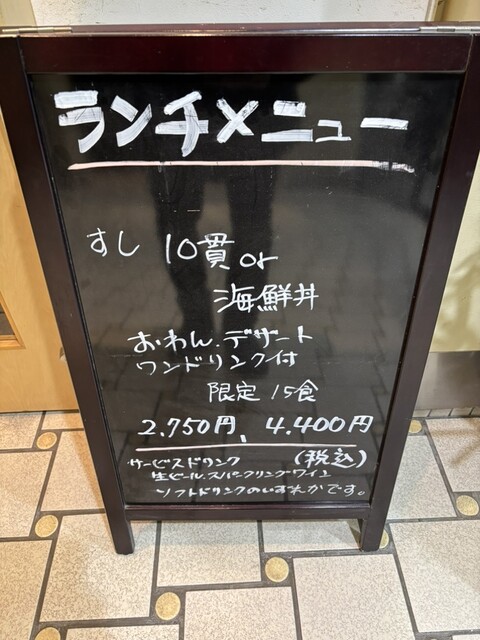 ランチメニュー
すし 10貫 or
海鮮丼
おわん.デザート
ワンドリンク付
限定 15食
2.750円、4.400円
(税込)
サービスドリンク
生ビール.スパークリングワイン
ソフトドリンクのいずれかです。